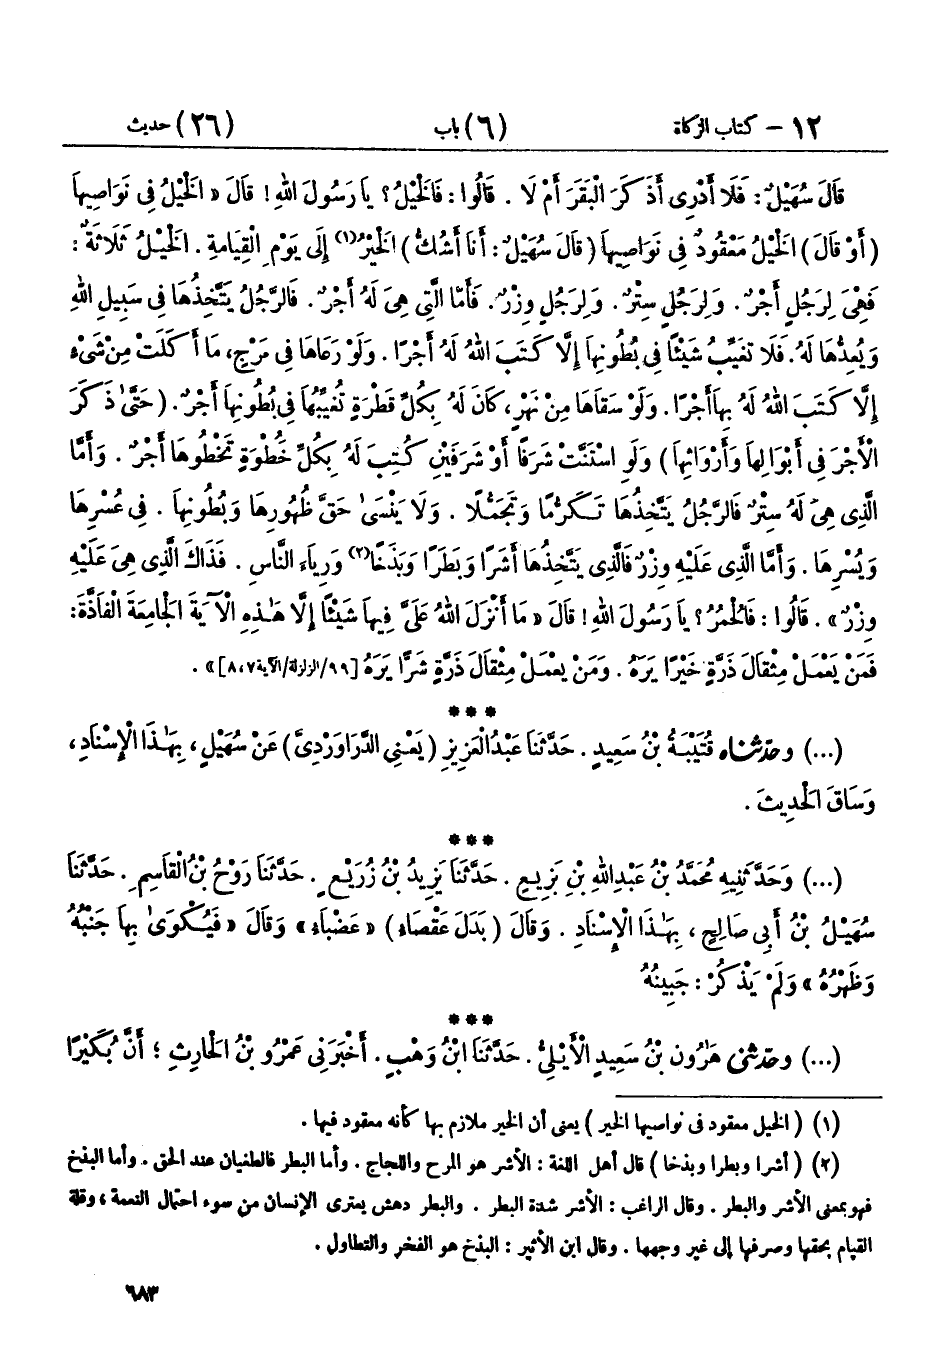 ١٢ – كتاب الزكاة (٦) باب (٢٦) حديث
قَالَ سُهَيْلٌ : فَلَا أَدْرِى أَذَكَرَ الْبَقَرَ أَمْ لَا . قَالُوا : فَالْخَيْلُ ؟ يَا رَسُولَ اللهِ ! قَالَ « الْخَيْلُ فِى نَوَاصِيهَا
( أَوْ قَالَ ) الْخَيْلُ مَعْقُودٌ فِى نَوَاصِيهَا ( قَالَ سُهَيْلٌ : أَنَا أَشُكُّ ) الْخَيْرُ(١) إِلَى يَوْمِ الْقِيَامَةِ . الْخَيْلُ ثَلَاثَةٌ :
فَهْىَ لِرَجُلٍ أَجْرٌ . وَلِرَجُلٍ سِتْرٌ . وَلِرَجُلٍ وِزْرٌ . فَأَمَّا الَّتِى هِىَ لَهُ أَجْرٌ . فَالرَّجُلُ يَتَّخِذُهَا فِى سَبِيلِ اللهِ
وَيُعِدُّهَا لَهُ . فَلَا تُغَيِّبُ شَيْئًا فِى بُطُونِهَا إِلَّا كَتَبَ اللهُ لَهُ أَجْرًا . وَلَوْ رَعَاهَا فِى مَرْجٍ، مَا أَكَلَتْ مِنْ شَىْءٍ
إِلَّا كَتَبَ اللهُ لَهُ بِهَا أَجْرًا . وَلَوْ سَقَاهَا مِنْ نَهْرٍ، كَانَ لَهُ بِكُلِّ قَطْرَةٍ تُغَيِّبُهَا فِى بُطُونِهَا أَجْرٌ . ( حَتَّىٰ ذَكَرَ
الْأَجْرَ فِى أَبْوَالِهَا وَأَرْوَاثِهَا ) وَلَوِ اسْتَنَّتْ شَرَفًا أَوْ شَرَفَيْنِ كُتِبَ لَهُ بِكُلِّ خُطْوَةٍ تَخْطُوهَا أَجْرٌ . وَأَمَّا
الَّذِى هِىَ لَهُ سِتْرٌ فَالرَّجُلُ يَتَّخِذُهَا تَكَرُّمًا وَتَجَمُّلًا . وَلَا يَنْسَىٰ حَقَّ ظُهُورِهَا وَبُطُونِهَا . فِى عُسْرِهَا
وَيُسْرِهَا . وَأَمَّا الَّذِى عَلَيْهِ وِزْرٌ فَالَّذِى يَتَّخِذُهَا أَشَرًا وَبَطَرًا وَبَذَخًا(٢) وَرِيَاءَ النَّاسِ . فَذَاكَ الَّذِى هِىَ عَلَيْهِ
وِزْرٌ » . قَالُوا : فَالْحُمُرُ ؟ يَا رَسُولَ اللهِ ! قَالَ « مَا أَنْزَلَ اللهُ عَلَىَّ فِيهَا شَيْئًا إِلَّا هَٰذِهِ الْآيَةَ الْجَامِعَةَ الْفَاذَّةَ :
فَمَنْ يَعْمَلْ مِثْقَالَ ذَرَّةٍ خَيْرًا يَرَهُ . وَمَنْ يَعْمَلْ مِثْقَالَ ذَرَّةٍ شَرًّا يَرَهُ [٩٩/الزلزلة/الآية ٧،٨] » .
***
(...) وحدثناه قُتَيْبَةُ بْنُ سَعِيدٍ . حَدَّثَنَا عَبْدُ الْعَزِيزِ ( يَعْنِي الدَّرَاوَرْدِىَّ ) عَنْ سُهَيْلٍ ، بِهَٰذَا الْإِسْنَادِ ،
وَسَاقَ الْحَدِيثَ .
***
(...) وَحَدَّثَنِيهِ مُحَمَّدُ بْنُ عَبْدِ اللهِ بْنِ بَزِيعٍ . حَدَّثَنَا يَزِيدُ بْنُ زُرَيْعٍ . حَدَّثَنَا رَوْحُ بْنُ الْقَاسِمِ . حَدَّثَنَا
سُهَيْلُ بْنُ أَبِى صَالِحٍ ، بِهَٰذَا الْإِسْنَادِ . وَقَالَ ( بَدَلَ عَقْصَاءَ ) « عَضْبَاءَ » وَقَالَ « فَيُكْوَىٰ بِهَا جَنْبُهُ
وَظَهْرُهُ » وَلَمْ يَذْكُرْ : جَبِينُهُ
***
(...) وحدثنى هَٰرُون بْنُ سَعِيدٍ الْأَيْلِىُّ . حَدَّثَنَا ابْنُ وَهْبٍ . أَخْبَرَنِى عَمْرُو بْنُ الْحَارِثِ ؛ أَنَّ بُكَيْرًا
(١) ( الخيل معقود فى نواصيها الخير ) يعنى أن الخير ملازم بها كأنه معقود فيها .
(٢) ( أشرا وبطرا وبذخا ) قال أهل اللغة : الأشر هو المرح واللجاج . وأما البطر فالطغيان عند الحق . وأما البذخ
فهو بمعنى الأشر والبطر . وقال الراغب : الأشر شدة البطر . والبطر دهش يعترى الإنسان من سوء احتمال النعمة ، وقلة
القيام بحقها وصرفها إلى غير وجهها . وقال ابن الأثير : البذخ هو الفخر والتطاول .
٦٨٣